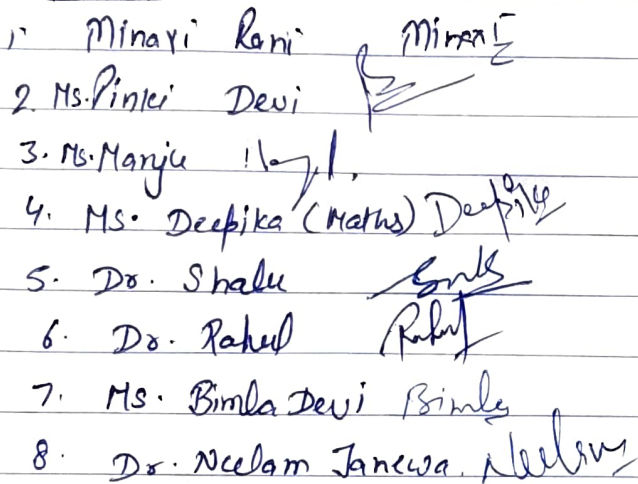 1. Minaxi Rani Minaxi
2. Ms. Pinki Devi
3. Ms. Manju
4. Ms. Deepika (Maths) Deepika
5. Dr. Shalu
6. Dr. Rahul Rahul
7. Ms. Bimla Devi Bimla
8. Dr. Neelam Janewa. Neelam